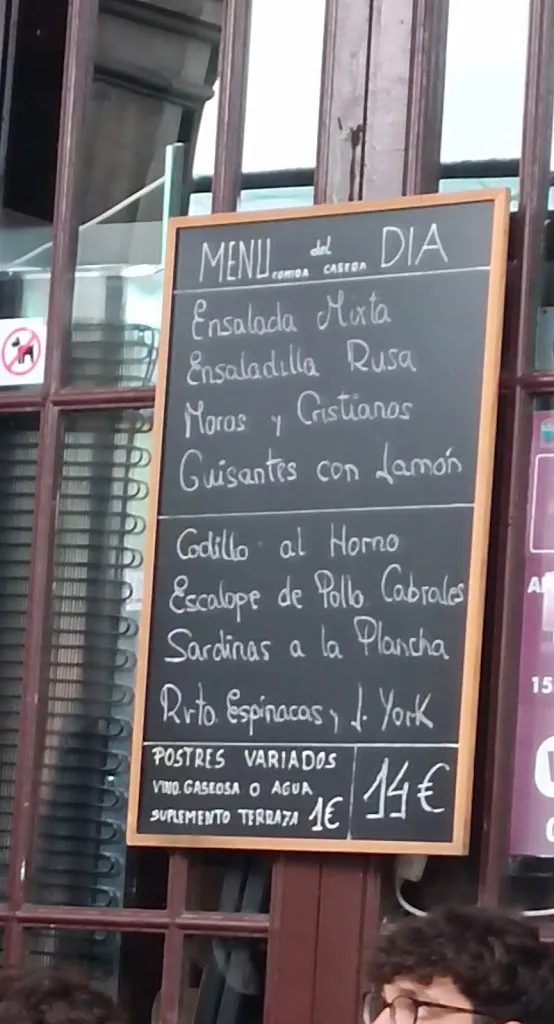 MENU del DIA
COMIDA CASERA
Ensalada Mixta
Ensaladilla Rusa
Moros y Cristianos
Guisantes con Jamón
Codillo al Horno
Escalope de Pollo Cabrales
Sardinas a la Plancha
Rvto. Espinacas y J. York
POSTRES VARIADOS
VINO. GASEOSA O AGUA
SUPLEMENTO TERRAZA 1€
14€
15